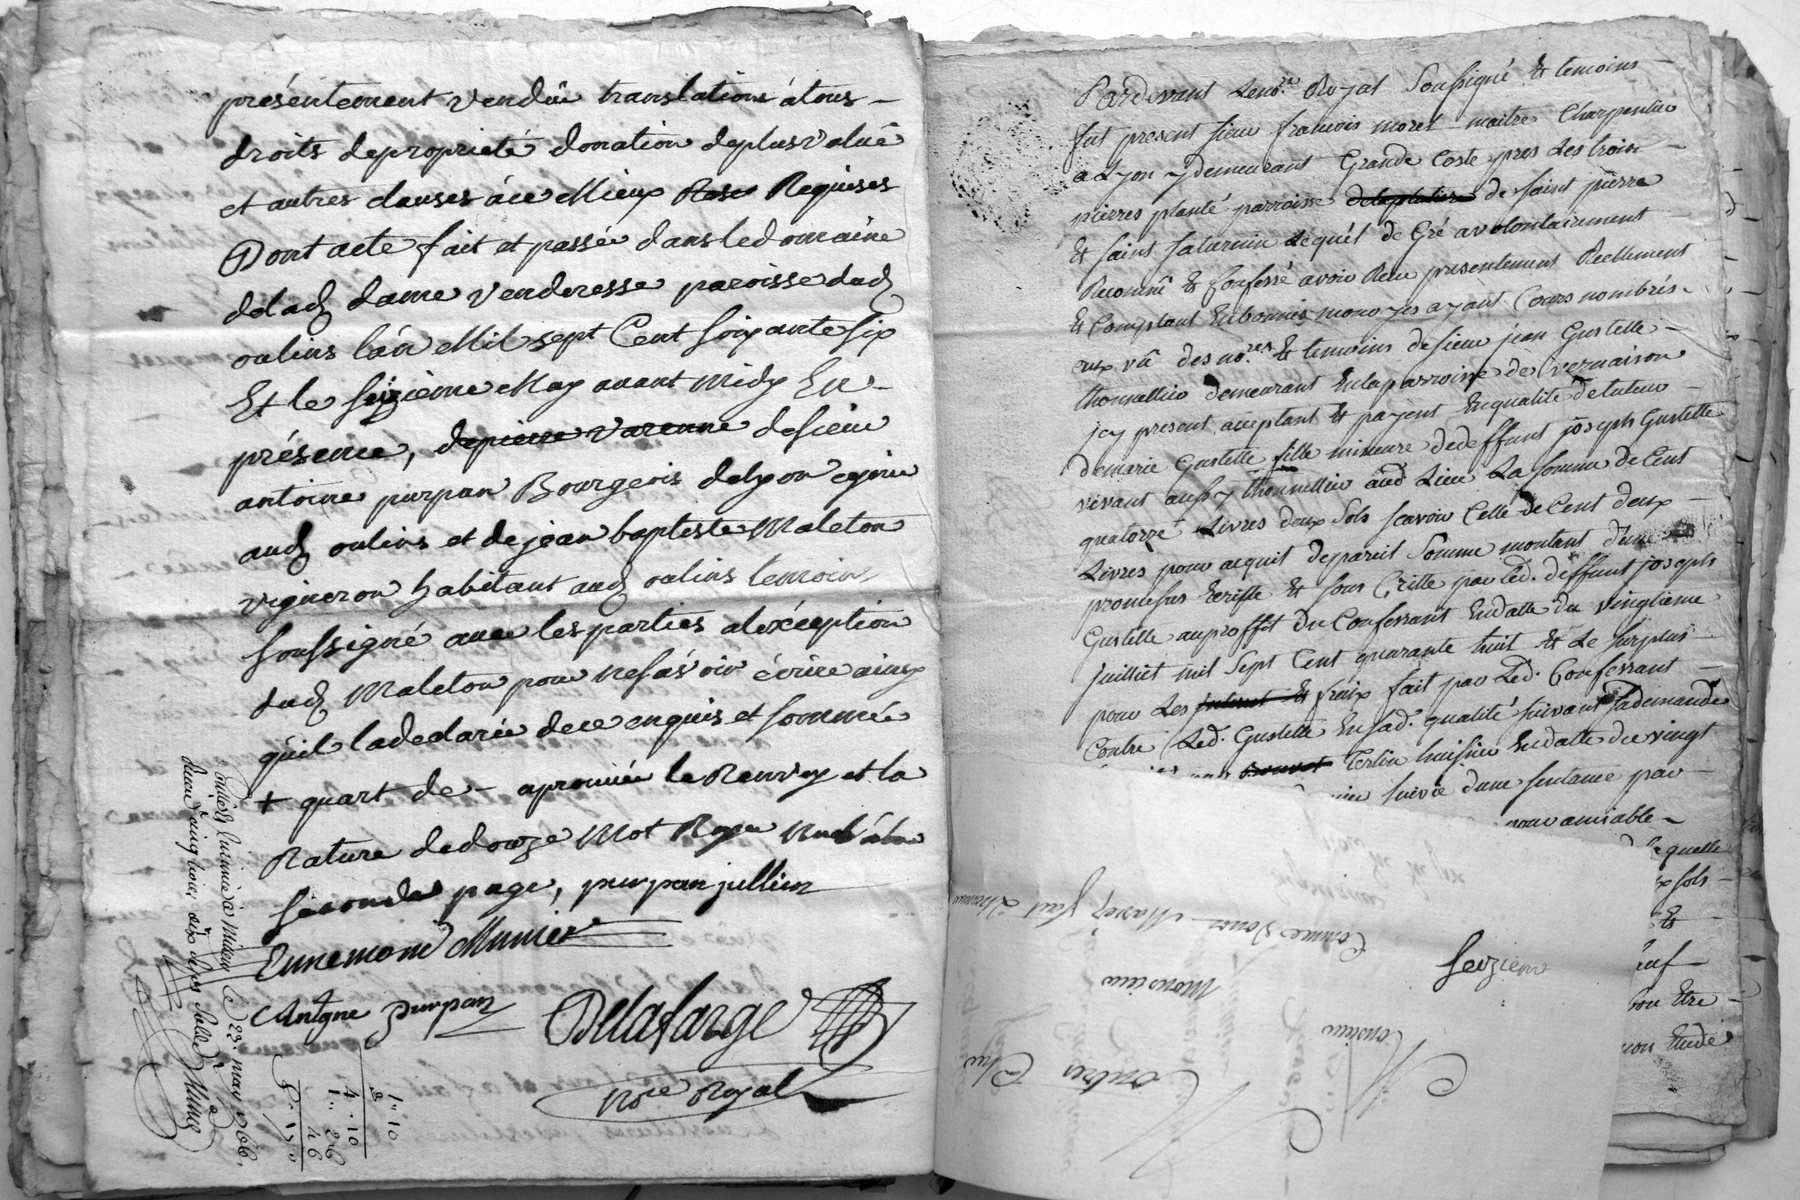 présentement vendüe translations à tous
droits de propriété donation de plus valüe
et autres clauses à ce Mieux Requises
Dont acte fait et passée dans le domaine
de lad dame venderesse paroisse dud
oulins l'án Mil sept Cent soixante six
Et le seizième May avant Midy En
présence, depierre varenne de sieur
antoine purpan Bourgeois de lyon
aud oulins et de jean baptiste Maleton
vigneron habitant aud oulins temoins
soussigné avec les parties a l'éxception
dud Maleton pour ne sávoir écrire ainsy
qu'il la declarée de ce enquis et sommée
+ quart de - aprouvée le Renvoy et la
Rature de douze Mot
seconde page, purpan jullien
Ennemond Munier
Antoine Purpan
Delafarge
no.re Royal
23. may 1766.
1" 10
8
4 . 10
1" 26
46
Pardevant le no.re Royal Soussigné & temoins
fut present sieur francois morel maitre Charpentier
a Lyon y demeurant Grande Coste pres Les trois
pierres planté parroisse delaplatiere de saint pierre
& saint saturnin Lequel de Gré a volontairement
Reconnû & Confessé avoir Reçu presentement Reellement
& Comptant En bonnes monoyes ayant Cours nombrés
aux vû des no.res & temoins de sieur jean Gustelle
thonnellier demeurant En la parroisse de vernaison
jcy present aceptant & payent En qualité de tuteur
de marie Gustelle fille mineure de deffunt joseph Gustelle
vivant aussy thonnellier aud Lieu La somme de Cent
quatorze Livres deux Sols scavoir Celle de Cent deux
Livres pour acquit de pareil Somme montant d'une
promesse Ecritte & sous par led. deffunt joseph
Gustelle au proffit du Confessant En datte du vingtieme
juilliet mil Sept Cent quarante huit & Le surplus
pour Les fraix fait par Led. Confessant
Contre Led. Gustelle En sad. qualité suivant sa demande
Tertin huissier En datte du vingt
suivie d'une sentence par
pour amiable
Lequelle
sols
&
Etre
mon Etude
seizieme
Monsieur
Monsieur